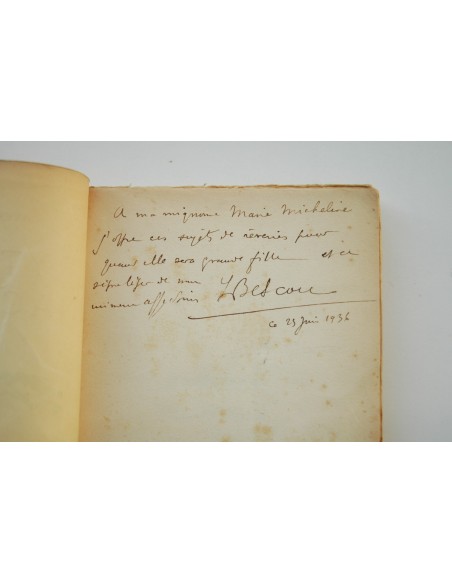 A ma mignonne Marie Micheline
j'offre ces sujets de rêveries pour
quand elle sera grande fille et ce
de mon
affection
ce 23 Juin 1936